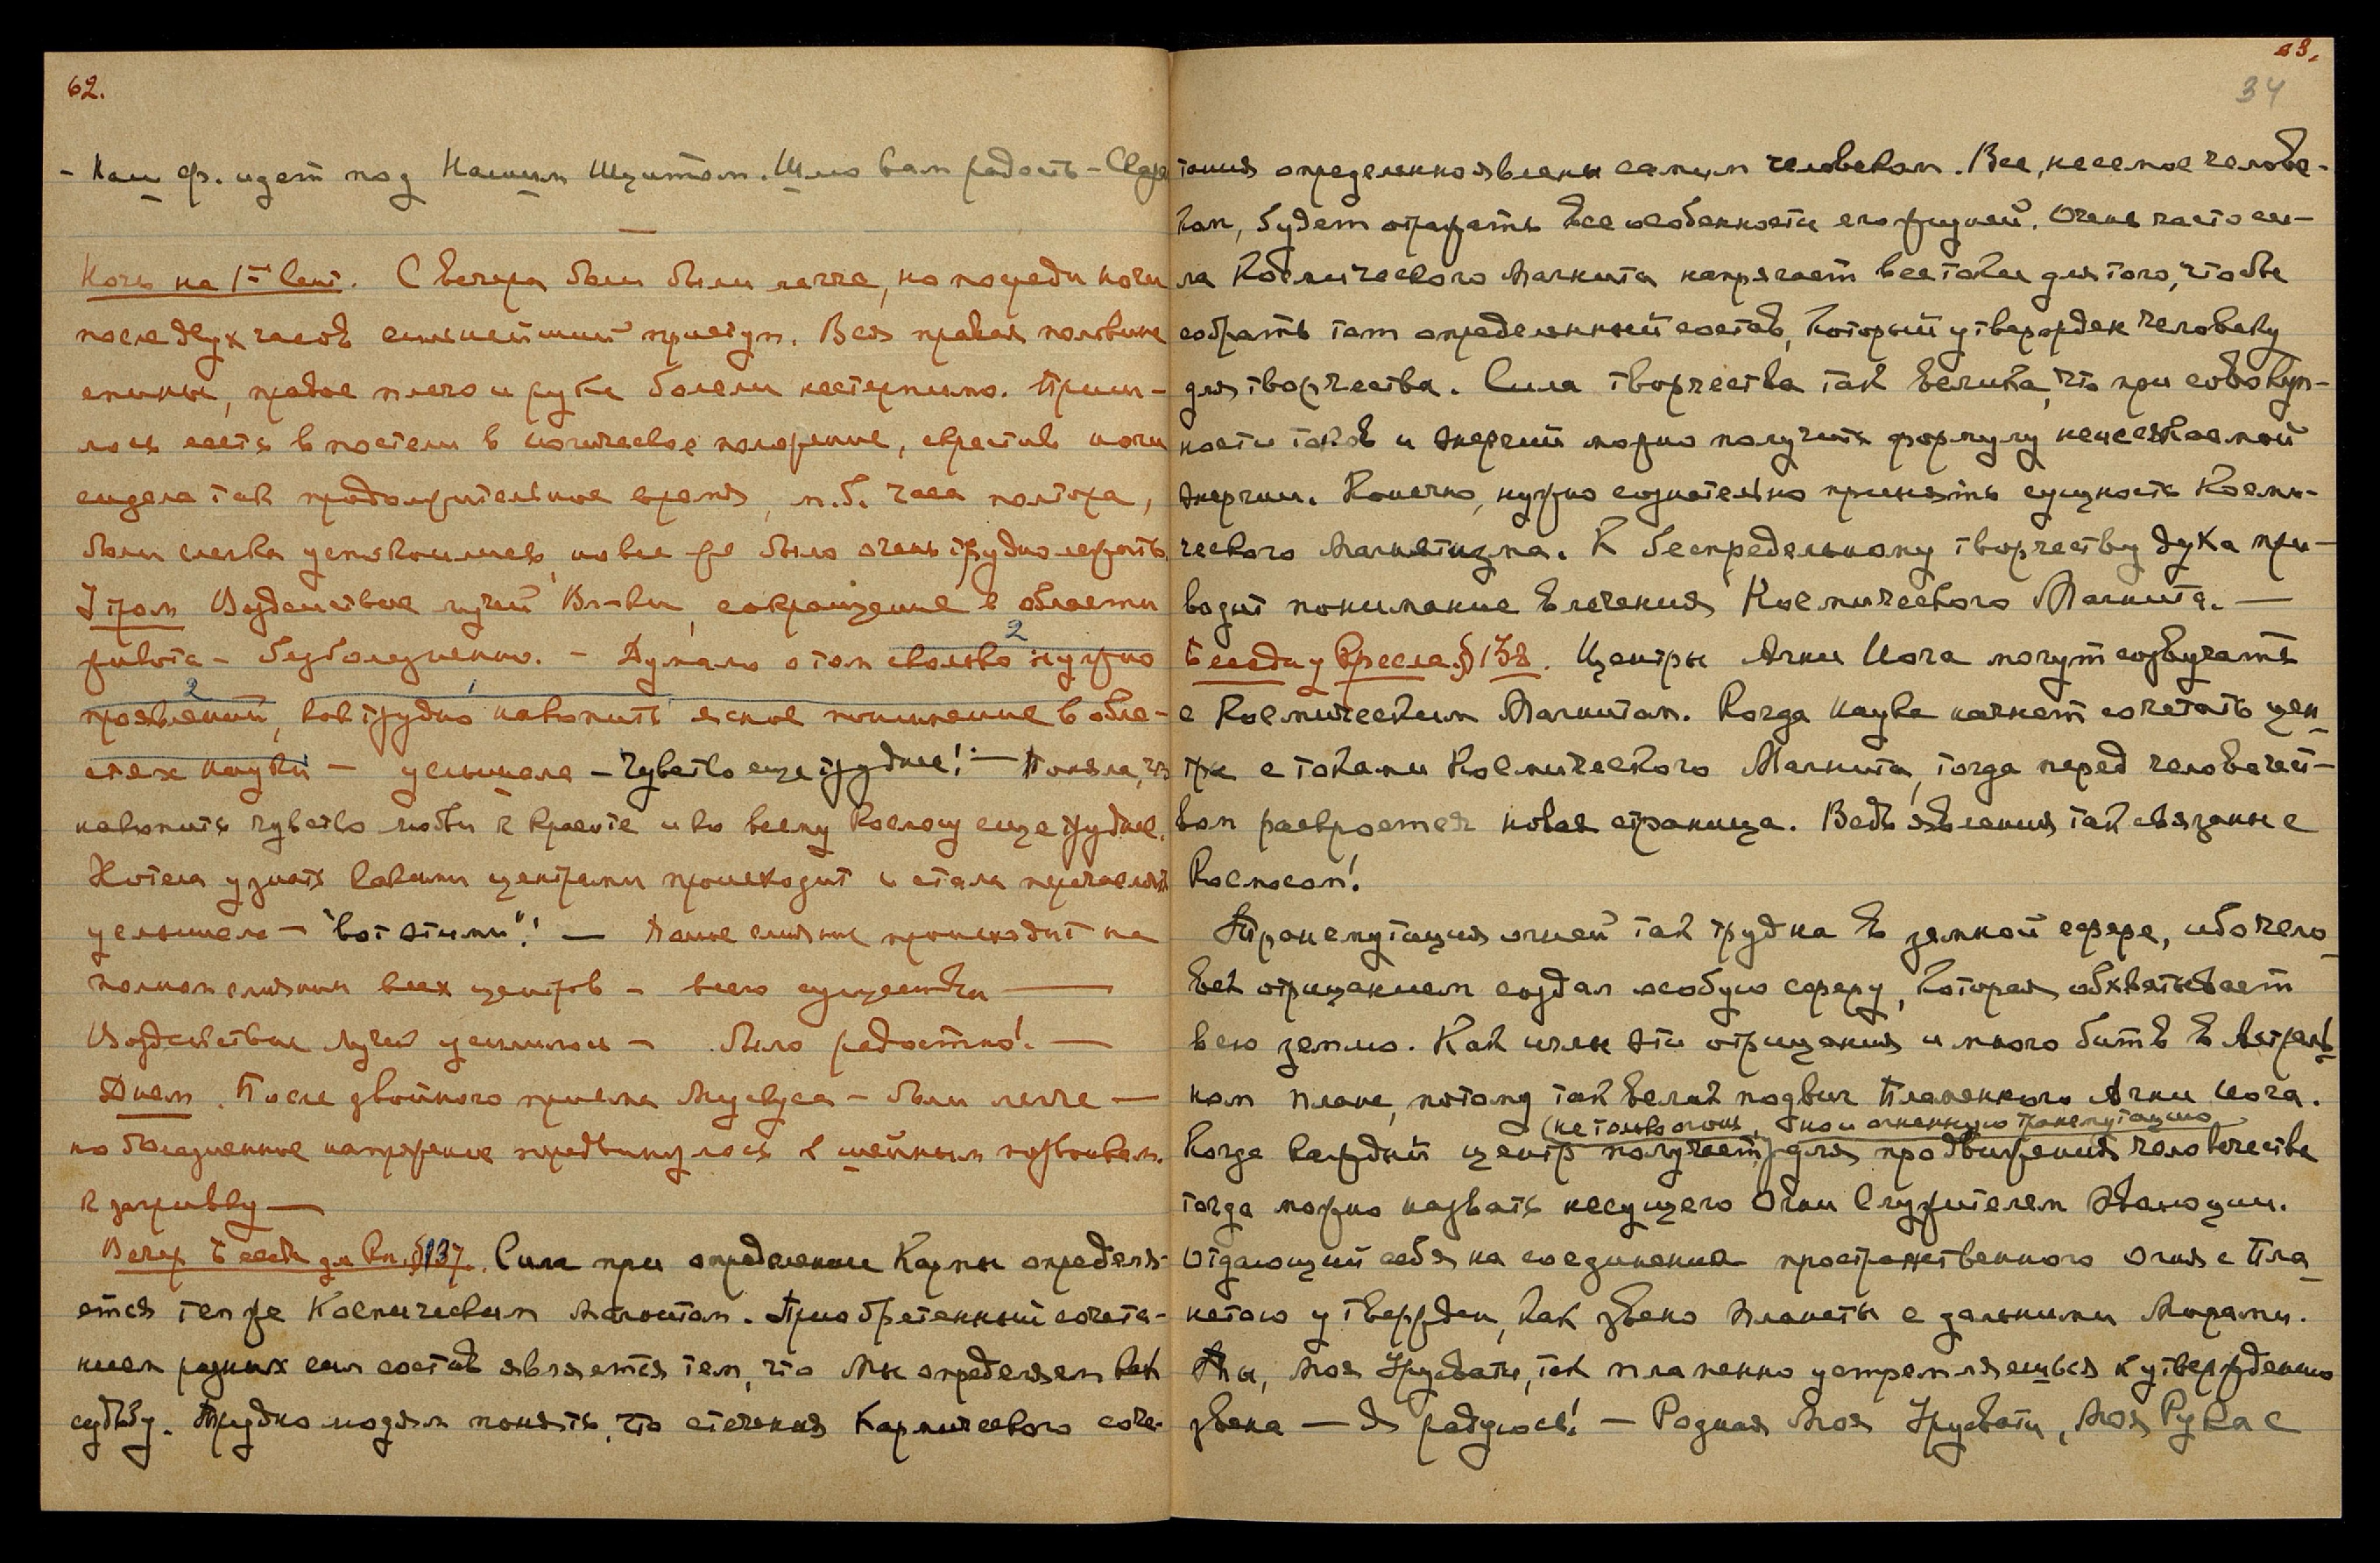 62.
- Наш фр. идет под Нашим Щитом. Шлю вам радость -
Ночь на 1ое Сент. С вечера боли были легче, но посреди ночи
после двух часов сильнейший приступ. Вся правая половина
спины, правое плечо и рука болели нестерпимо. Приш-
лось сесть в постели в йогическое положение, скрестив ноги
сидела так продолжительное время, м.б. часа полтора,
боли слегка успокоились, но все же было очень трудно лежать.
Утром Воздействие лучей Вл-ки, сокращение в области
живота - безболезненно. - Думала о том сколько 2 нужно
2 проявлений, 1 как трудно накопить ясное понимание в обла-
стях науки - услышала - Чувство еще труднее! - Поняла, что
накопить чувство любви к красоте и ко всему Космосу еще труднее.
Хотела узнать какими центрами происходит и стала перечислять
услышала - "вот этими"! - Наше слияние происходит на
полном слиянии всех центров - всего существа —
Воздействие Лучей усилилось - было радостно! —
Днем. После двойного приема Мускуса - боли легче —
но болезненное напряжение передвинулось к шейным позвонкам.
к загривку —
Вечер Беседа у Кр. §137. Сила при определении Кармы определя-
ется тем же Космическим Магнитом. Приобретенный сочета-
нием разных сил состав является тем, что Мы определяем как
судьбу. Трудно людям понять, что стечения Кармического соче-
63.
34
тания определенно явлены самим человеком. Все, несомое челове-
ком, будет отражать все особенности его жизней. Очень часто си-
ла Космического Магнита напрягает все токи для того, чтобы
собрать тот определенный состав, который утвержден человеку
для творчества. Сила творчества так велика, что при совокуп-
ности токов и энергий можно получить формулу неиссякаемой
энергии. Конечно, нужно сознательно принять сущность Косми-
ческого Магнетизма. К беспредельному творчеству духа при-
водит понимание влечения Космического Магнита. —
Беседа у Кресла. §138. Центры Агни Йога могут созвучать
с Космическим Магнитом. Когда наука начнет сочетать цен-
тры с токами Космического Магнита, тогда перед человечест-
вом раскроется новая страница. Ведь явления так связаны с
Космосом!
Трансмутация огней так трудна в земной сфере, ибо чело-
век отрицанием создал особую сферу, которая обхватывает
всю землю. Как иглы эти отрицания и много битв в Астраль-
ном плане, потому так велик подвиг Пламенного Агни Йога.
(не только огонь, но и огненную трансмутацию)
Когда каждый центр получает для продвижения человечества
тогда можно назвать несущего Огни Служителем Эволюции.
Отдающий себя на соединение пространственного огня с Пла-
нетою утвержден, как звено планеты с дальними Мирами.
Ты, Моя Урусвати, так пламенно устремляешься к утверждению
звена — Я радуюсь! — Родная Моя Урусвати, Моя Рука с